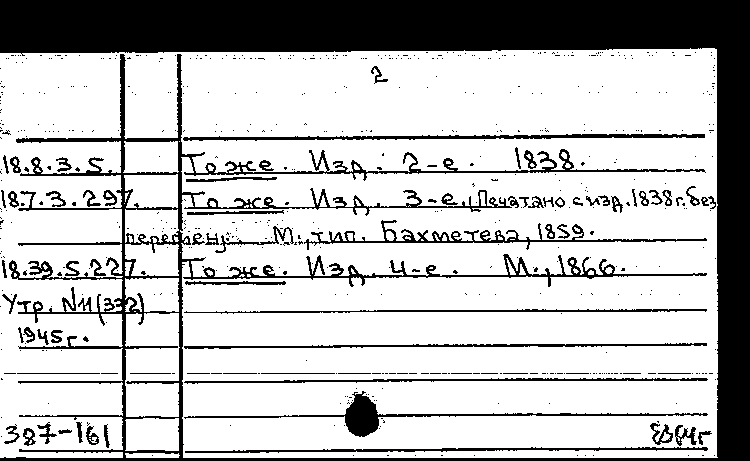 2
18.8.3.5. То же. Изд. 2-е. 1838.
18.7.3.297. То же. Изд. 3-е. (Печатано с изд. 1838 г. без
перемен). М., тип. Бахметева, 1859.
18.39.5.227. То же. Изд. 4-е. М., 1866.
Утр. N11(332)
1945г.
387-161